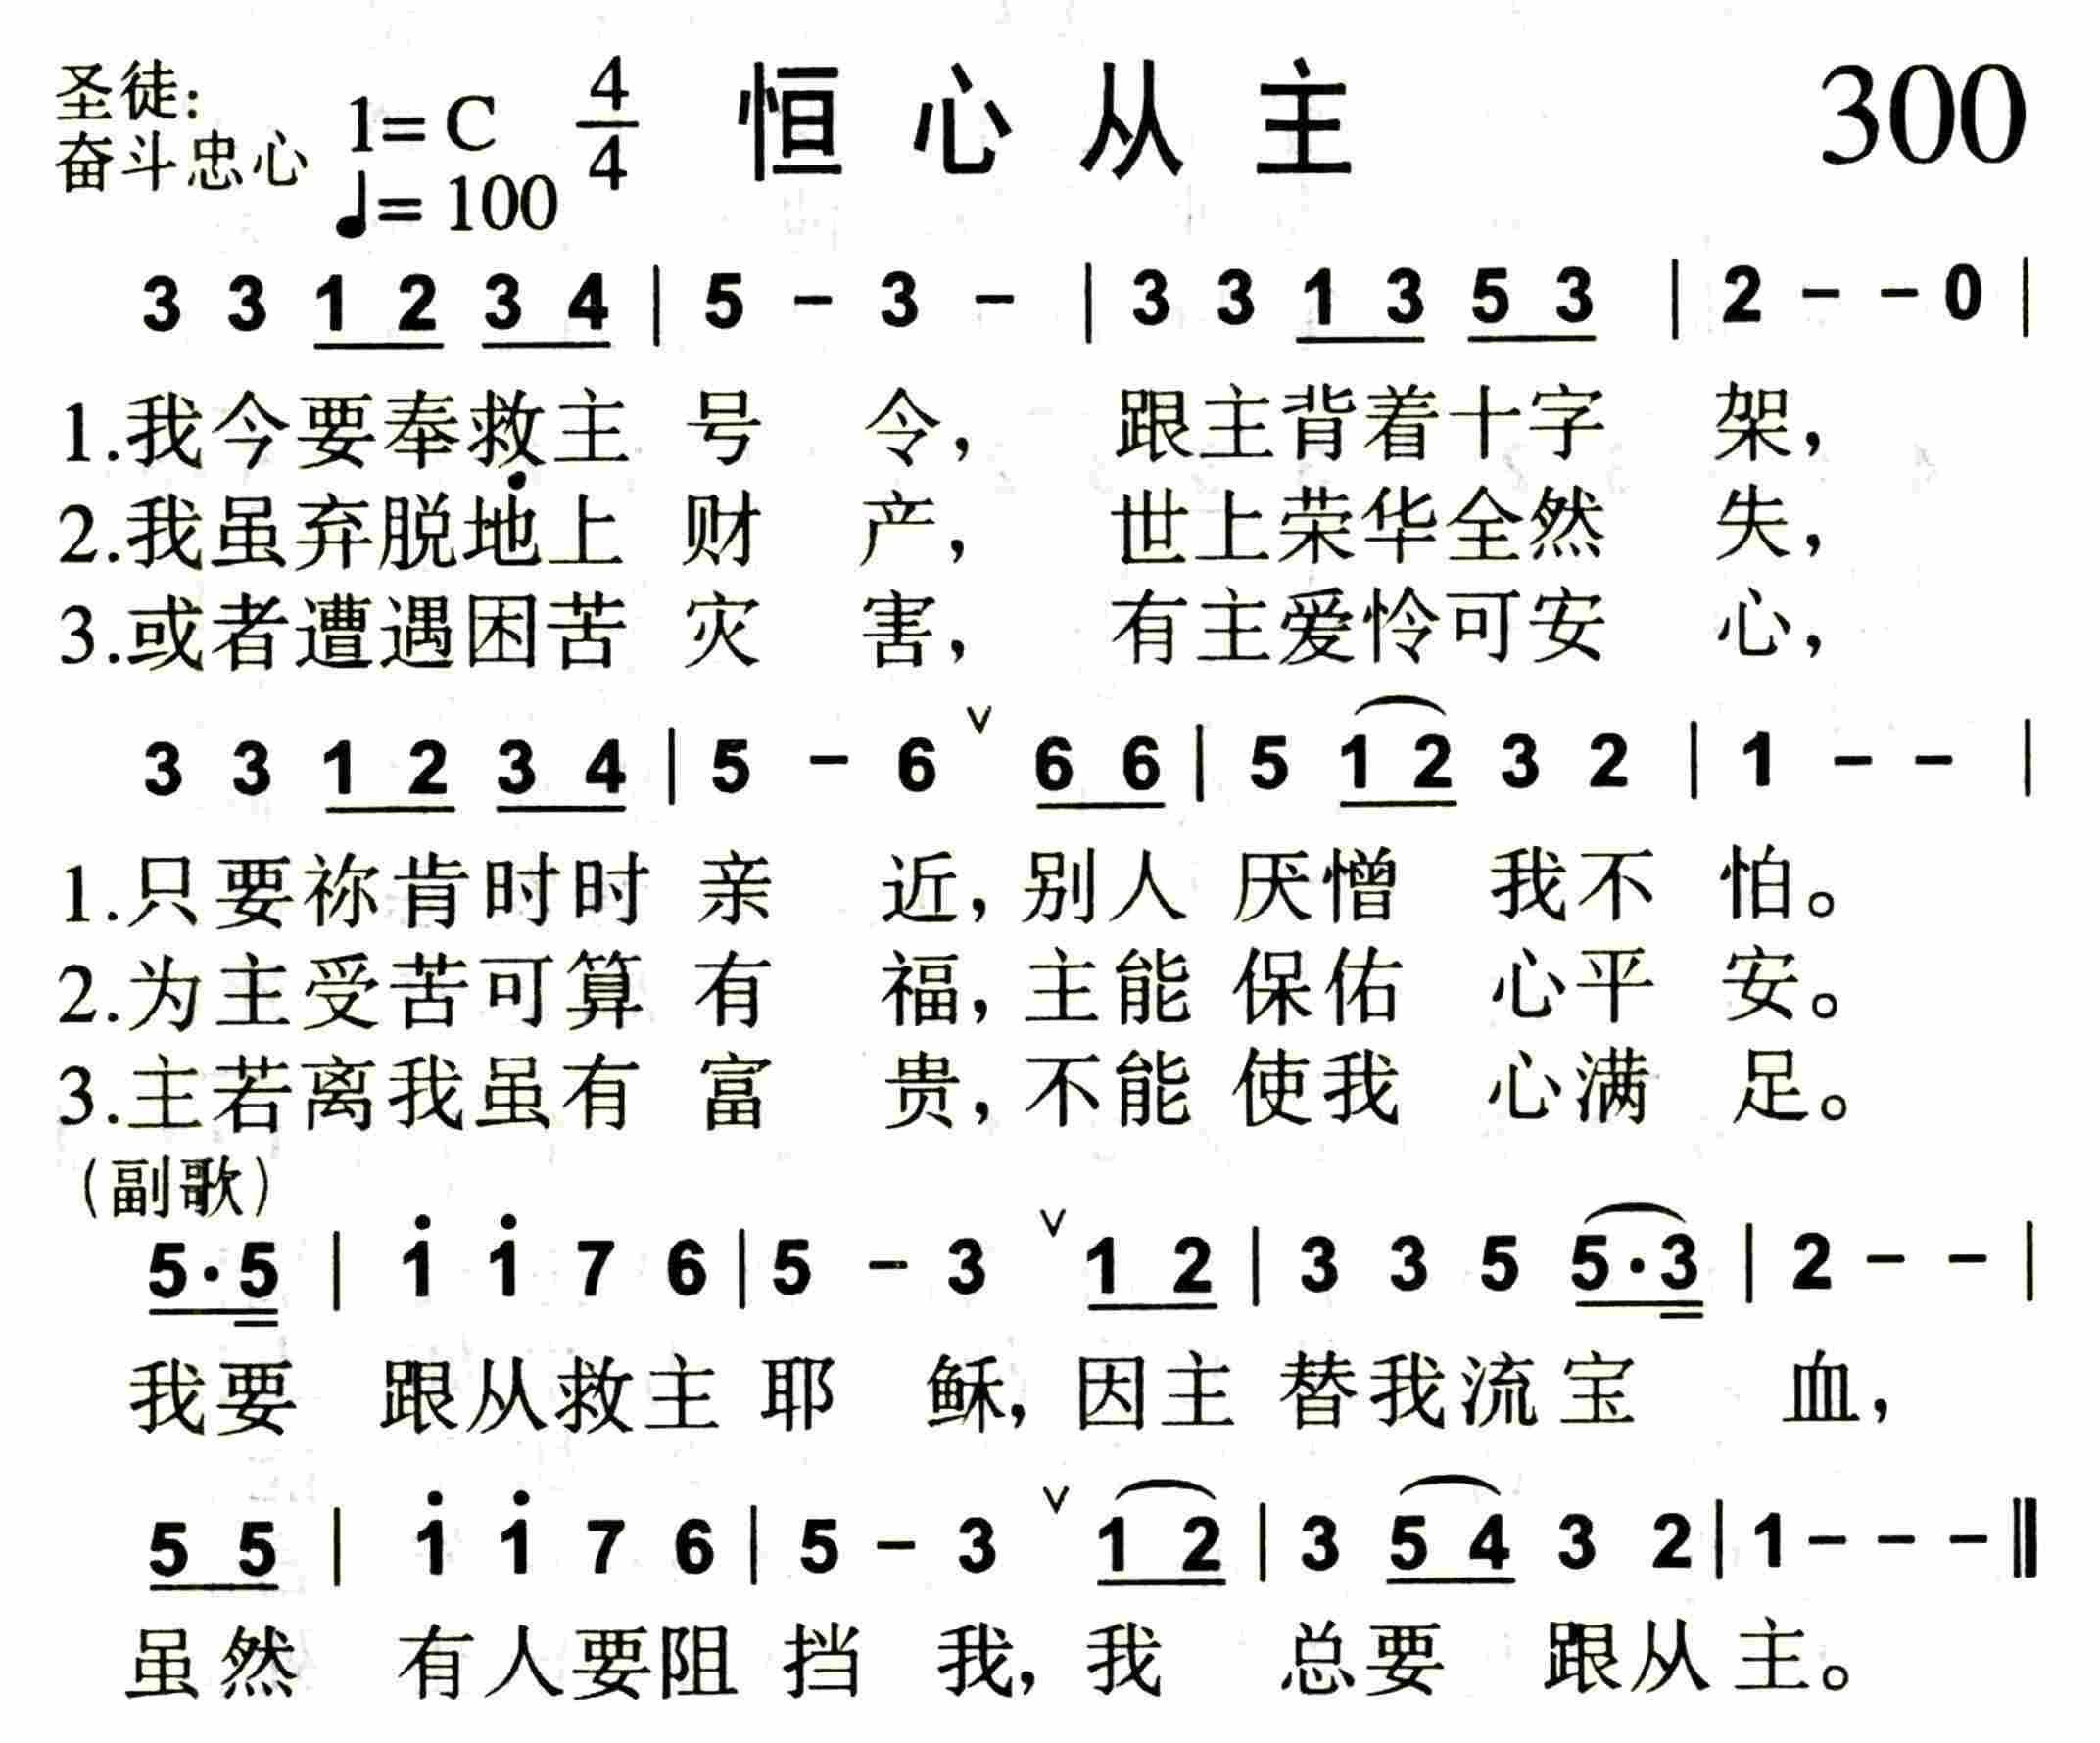 圣徒: 1=C 4/4 恒心从主 300
奋斗忠心 ♩=100
3 3 1 2 3 4 | 5 - 3 - | 3 3 1 3 5 3 | 2 - - 0 |
1.我今要奉救主 号 令, 跟主背着十字 架,
2.我虽弃脱地上 财 产, 世上荣华全然 失,
3.或者遭遇困苦 灾 害, 有主爱怜可安 心,
3 3 1 2 3 4 | 5 - 6 ∨ 6 6 | 5 1 2 3 2 | 1 - - |
1.只要祢肯时时 亲 近, 别人 厌憎 我不 怕。
2.为主受苦可算 有 福, 主能 保佑 心平 安。
3.主若离我虽有 富 贵, 不能 使我 心满 足。
(副歌)
5·5 | i i 7 6 | 5 - 3 ∨ 1 2 | 3 3 5 5·3 | 2 - - |
我要 跟从救主 耶 稣, 因主 替我流宝 血,
5 5 | i i 7 6 | 5 - 3 ∨ 1 2 | 3 5 4 3 2 | 1 - - - ‖
虽然 有人要阻 挡 我, 我 总要 跟从主。